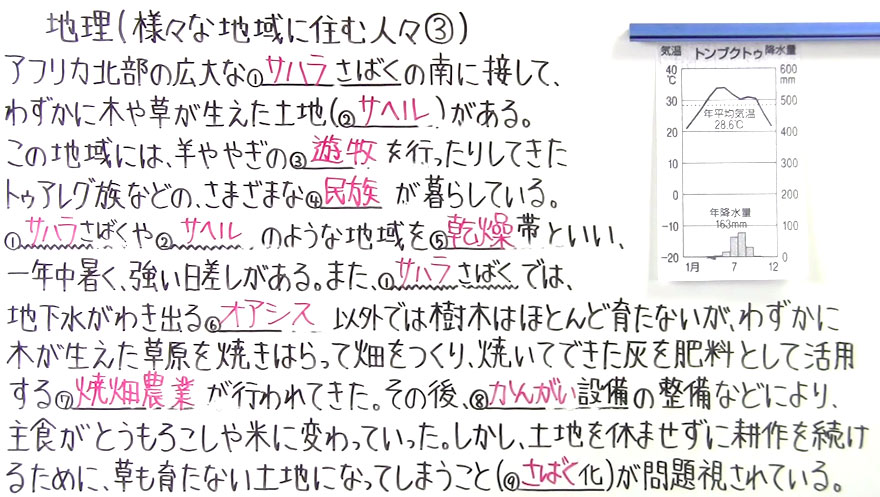 地理(様々な地域に住む人々③)
アフリカ北部の広大な①サハラさばくの南に接して、
わずかに木や草が生えた土地(②サヘル)がある。
この地域には、羊ややぎの③遊牧を行ったりしてきた
トゥアレグ族などの、さまざまな④民族が暮らしている。
①サハラさばくや②サヘルのような地域を⑤乾燥帯といい、
一年中暑く、強い日差しがある。また、①サハラさばくでは、
地下水がわき出る⑥オアシス以外では樹木はほとんど育たないが、わずかに
木が生えた草原を焼きはらって畑をつくり、焼いてできた灰を肥料として活用
する⑦焼畑農業が行われてきた。その後、⑧かんがい設備の整備などにより、
主食がとうもろこしや米に変わっていった。しかし、土地を休ませずに耕作を続け
るために、草も育たない土地になってしまうこと(⑨さばく化)が問題視されている。
気温 トンブクトゥ 降水量
40 600
℃ mm
30 500
年平均気温
28.6℃
20 400
10 300
0 200
年降水量
163mm
-10 100
-20 0
1月 7 12